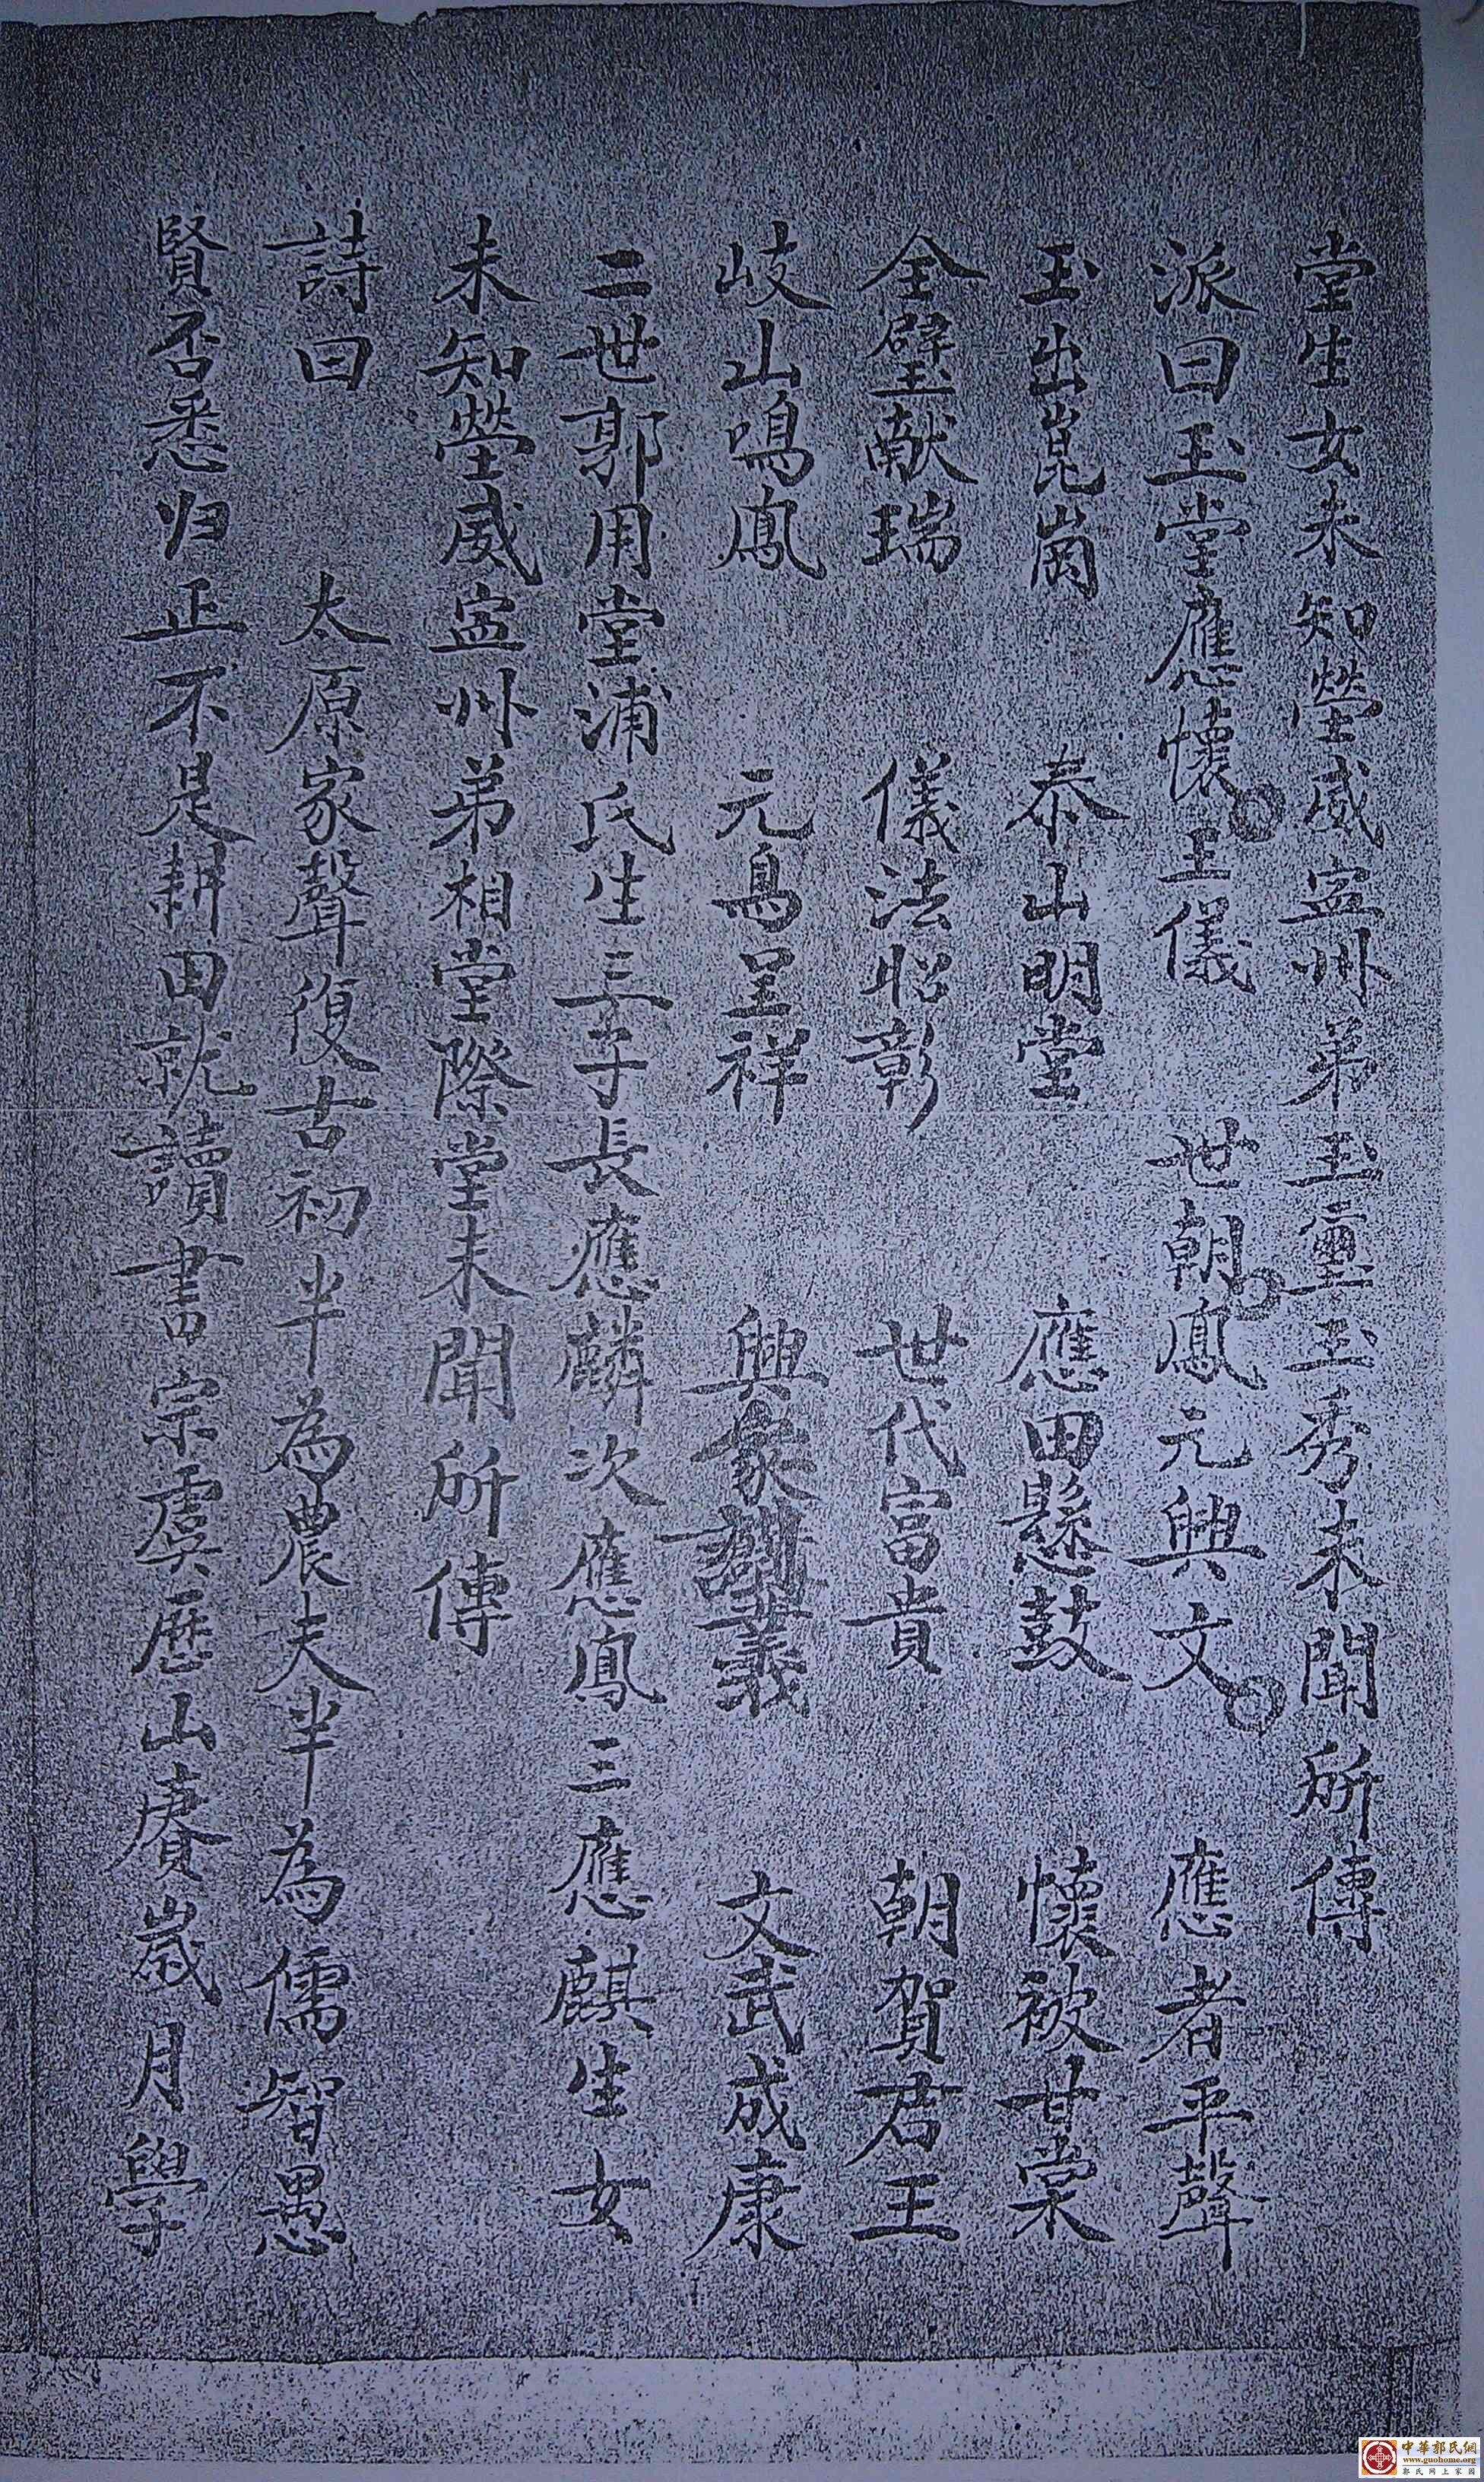 堂生女未知塋威寍州弟玉璽玉秀未聞所傳
派曰玉堂應懷玉儀 世朝鳳元興文 應者平聲
玉出崑崗 泰山明堂 應田懸鼓 懷被甘棠
全璧献瑞 儀法昭彰 世代富貴 朝賀君王
岐山鳴鳳 元鳥呈祥 興義 文武成康
二世郭用堂浦氏生三子長應麟次應鳳三應麒生女
未知塋威寍州弟相堂際堂未聞所傳
詩曰 太原家聲復古初半為農夫半為儒智愚
賢否悉归正不是耕田就讀書宗虞歷山賡歲月學
中華郭氏網
www.guohome.org
郭氏网上家园